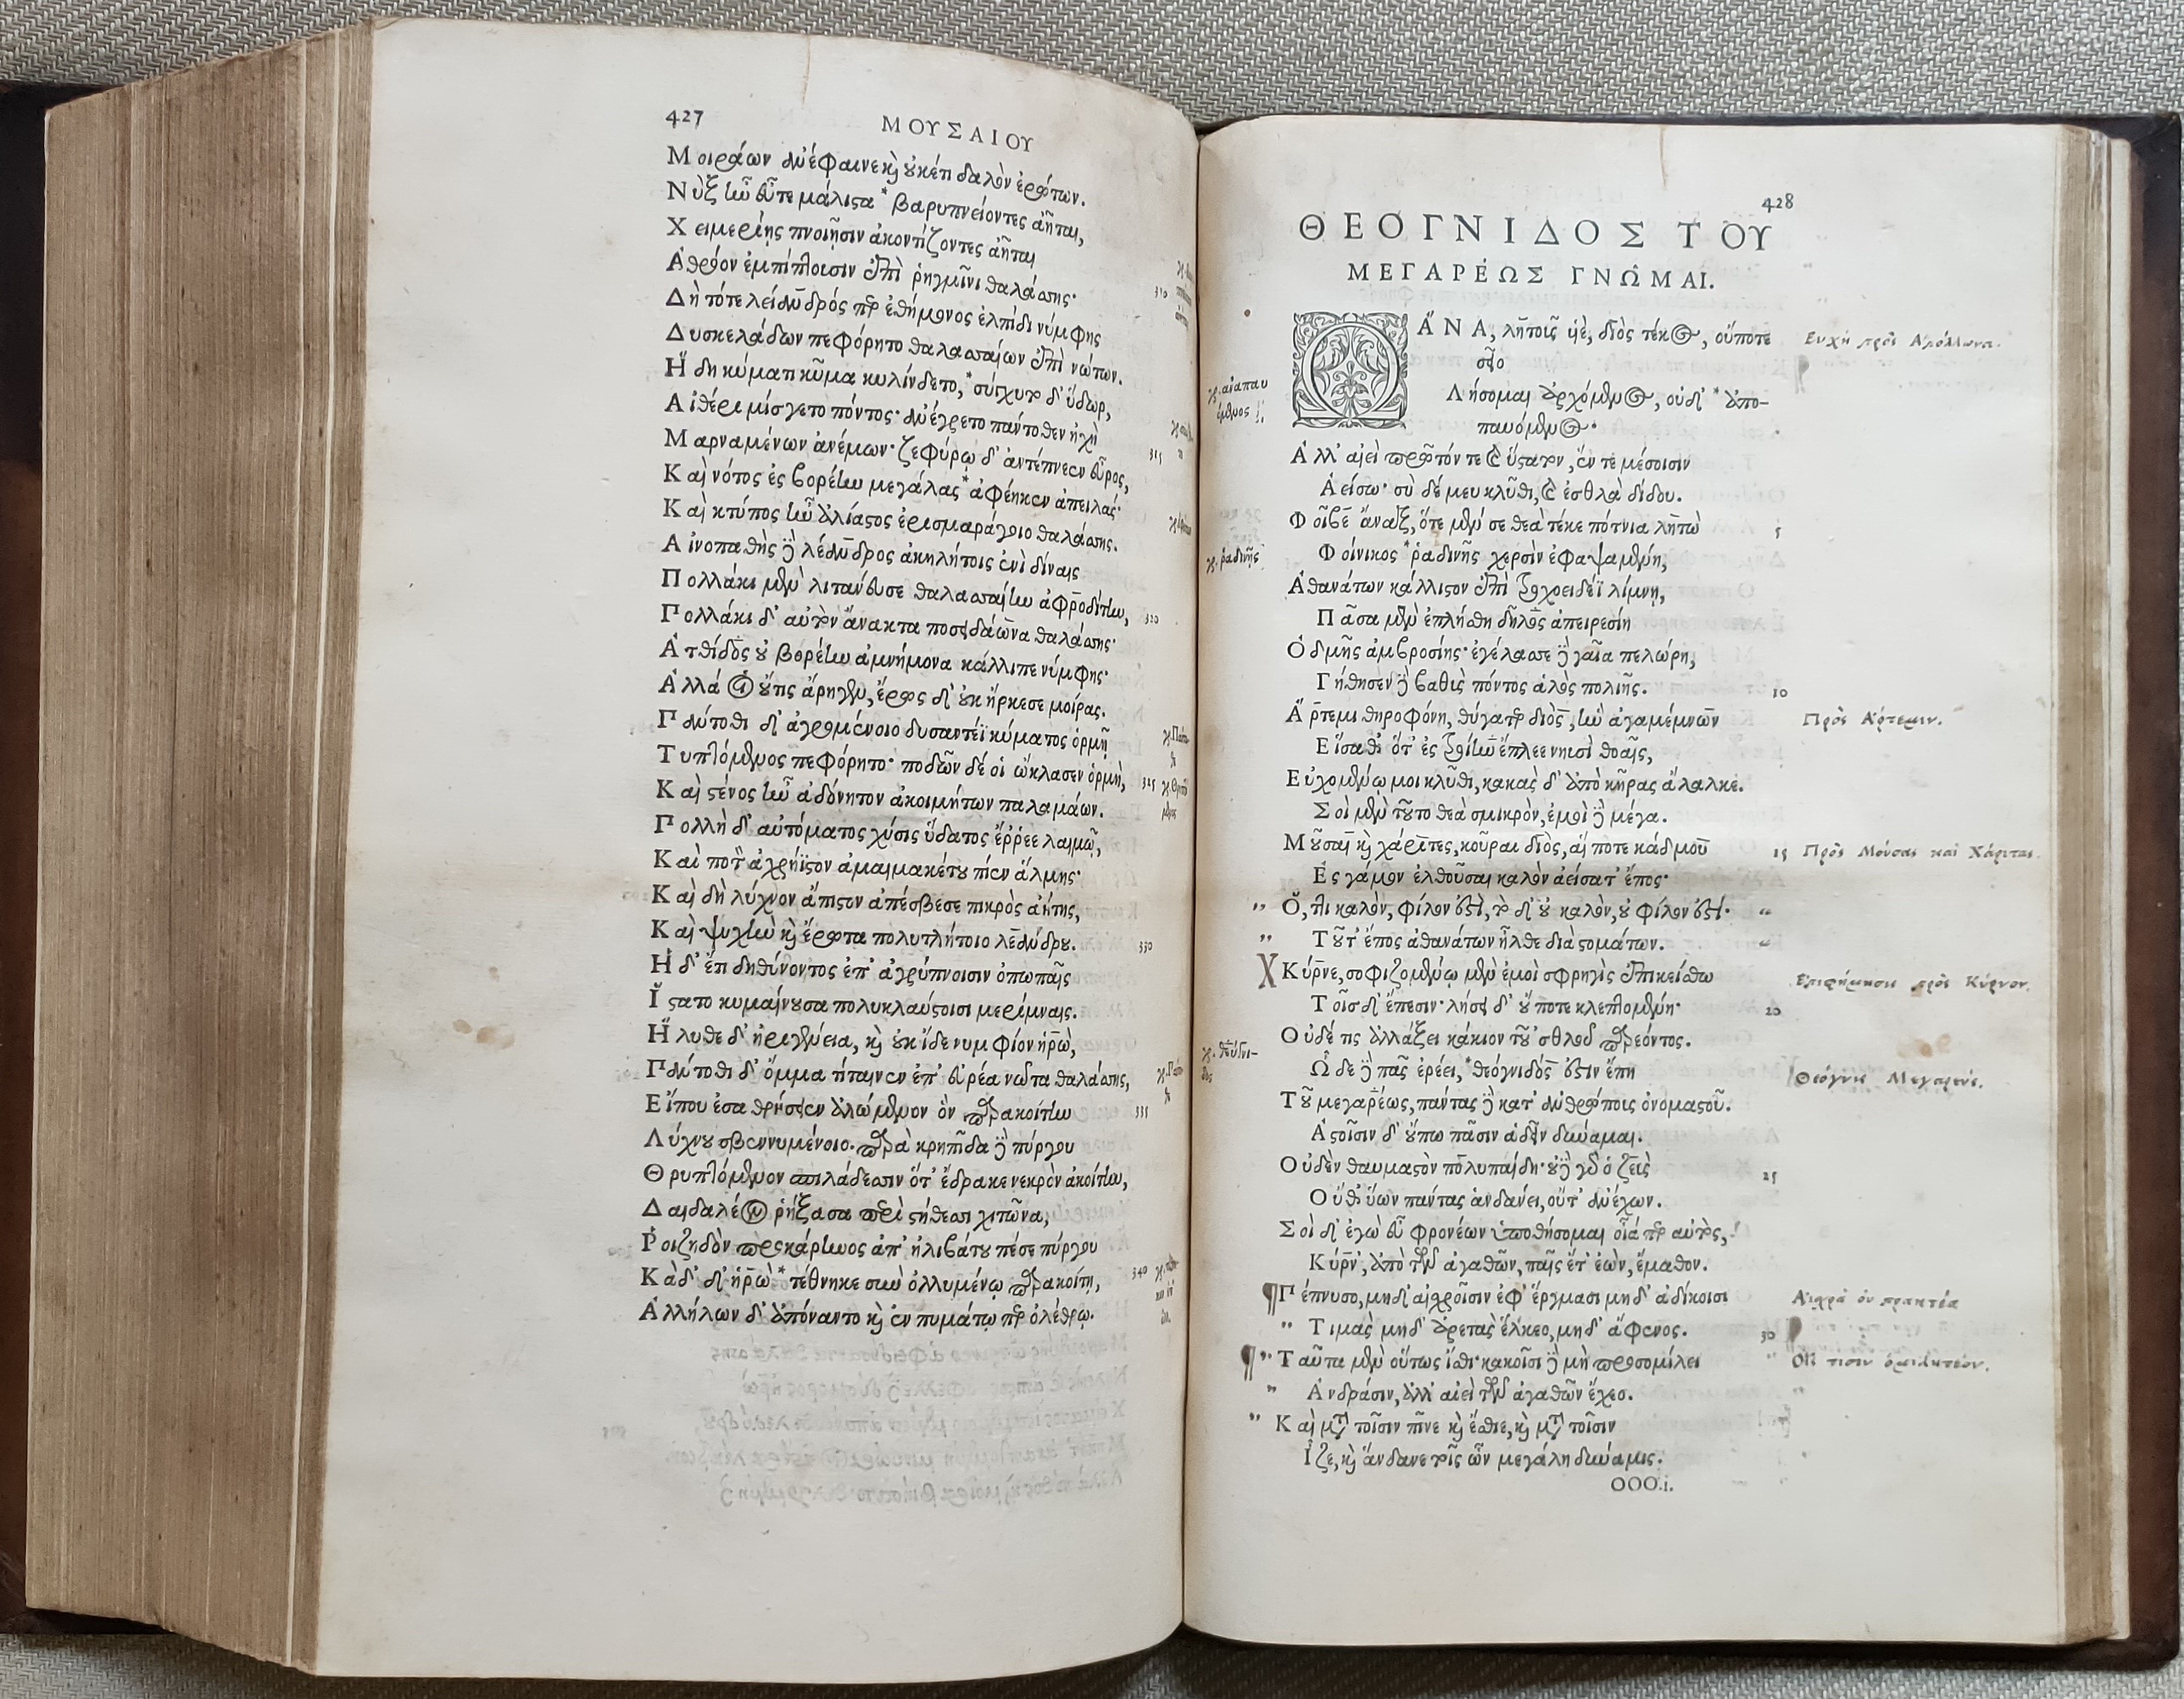 427
ΜΟΥΣΑΙΟΥ
Μοιράων ἀνέφαινε καὶ οὐκέτι δαλὸν ἐρώτων.
Νὺξ ἦν εὖτε μάλιστα * βαρυπνείοντες ἀῆται,
Χειμερίης πνοιῇσιν ἀκοντίζοντες ἀῆται
Ἀθρόον ἐμπίπτουσιν ἐπὶ ῥηγμῖνι θαλάσσης·
Δὴ τότε λείανδρός περ ἐθήμονος ἐλπίδι νύμφης
Δυσκελάδων πεφόρητο θαλασσαίων ἐπὶ νώτων.
Ἤδη κύματι κῦμα κυλίνδετο, * σύγχυτο δ' ὕδωρ,
Αἰθέρι μίσγετο πόντος· ἀνέγρετο παντόθεν ἠχὴ
Μαρναμένων ἀνέμων· ζεφύρῳ δ' ἀντέπνεεν εὖρος,
315
Καὶ νότος ἐς βορέην μεγάλας * ἀφέηκεν ἀπειλάς·
Καὶ κτύπος ἦν ἀλίαστος ἐρισμαράγοιο θαλάσσης.
Αἰνοπαθὴς δὲ λέανδρος ἀκηλήτοις ἐνὶ δίναις
Πολλάκι μὲν λιτάνευσε θαλασσαίην ἀφροδίτην,
320
Πολλάκι δ' αὐτὸν ἄνακτα ποσειδάωνα θαλάσσης·
Ἀτθίδος οὐ βορέην ἀμνήμονα κάλλιπε νύμφης·
Ἀλλά οἱ οὔτις ἄρηγεν, ἔρως δ' οὐκ ἤρκεσε μοίρας.
Πάντοθι δ' ἀγρομένοιο δυσαντέϊ κύματος ὁρμῇ
Τυπτόμενος πεφόρητο· ποδῶν δέ οἱ ὤκλασεν ὁρμὴ,
325
Καὶ σθένος ἦν ἀδόνητον ἀκοιμήτων παλαμάων.
Πολλὴ δ' αὐτόματος χύσις ὕδατος ἔρρεε λαιμῷ,
Καὶ ποτὸν ἀχρήϊστον ἀμαιμακέτου πίεν ἅλμης·
Καὶ δὴ λύχνον ἄπιστον ἀπέσβεσε πικρὸς ἀήτης,
Καὶ ψυχὴν καὶ ἔρωτα πολυτλήτοιο λεάνδρου.
330
Ἡ δ' ἔτι δηθύνοντος ἐπ' ἀγρύπνοισιν ὀπωπαῖς
Ἵστατο κυμαίνουσα πολυκλαύστοισι μερίμναις.
Ἤλυθε δ' ἠριγένεια, καὶ οὐκ ἴδε νυμφίον ἡρὼ,
Πάντοθι δ' ὄμμα τίταινεν ἐπ' εὐρέα νῶτα θαλάσσης,
Εἴπου ἐσαθρήσειεν ἀλώμενον ὃν παρακοίτην
335
Λύχνου σβεννυμένοιο. παρὰ κρηπῖδα δὲ πύργου
Θρυπτόμενον σπιλάδεσσιν ὅτ' ἔδρακε νεκρὸν ἀκοίτην,
Δαιδαλέον ῥήξασα περὶ στήθεσσι χιτῶνα,
Ῥοιζηδὸν προκάρηνος ἀπ' ἠλιβάτου πέσε πύργου
Κὰδ' δ' ἡρὼ * τέθνηκε σὺν ὀλλυμένῳ παρακοίτῃ,
340
Ἀλλήλων δ' ἀπόναντο καὶ ἐν πυμάτῳ περ ὀλέθρῳ.
428
ΘΕΟΓΝΙΔΟΣ ΤΟΥ
ΜΕΓΑΡΕΩΣ ΓΝΩΜΑΙ.
Ὦ ΑΝΑ, λητοῦς υἱὲ, διὸς τέκος, οὔποτε
Ευχὴ πρὸς Απόλλωνα.
σεῖο
Λήσομαι ἀρχόμενος, οὐδ' * ἀπο-
παυόμενος·
γρ. αἰαπαυ
όμενος
Ἀλλ' αἰεὶ πρῶτόν τε καὶ ὕστατον, ἔν τε μέσοισιν
Ἀείσω· σὺ δέ μευ κλῦθι, καὶ ἐσθλὰ δίδου.
Φοῖβε ἄναξ, ὅτε μέν σε θεὰ τέκε πότνια λητὼ
5
Φοίνικος * ῥαδινῆς χερσὶν ἐφαψαμένη,
γρ. ῥαδινῇς
Ἀθανάτων κάλλιστον ἐπὶ τροχοειδέϊ λίμνῃ,
Πᾶσα μὲν ἐπλήσθη δῆλος ἀπειρεσίη
Ὀδμῆς ἀμβροσίης· ἐγέλασσε δὲ γαῖα πελώρη,
Γήθησεν δὲ βαθὺς πόντος ἁλὸς πολιῆς.
10
Ἄρτεμι θηροφόνη, θύγατερ διὸς, ἣν ἀγαμέμνων
Πρὸς Ἀρτεμιν.
Εἵσαθ' ὅτ' ἐς τροίην ἔπλεε νηυσὶ θοαῖς,
Εὐχομένῳ μοι κλῦθι, κακὰς δ' ἀπὸ κῆρας ἄλαλκε.
Σοὶ μὲν τοῦτο θεὰ σμικρὸν, ἐμοὶ δὲ μέγα.
Μοῦσαι καὶ χάριτες, κοῦραι διὸς, αἵ ποτε κάδμου
15
Πρὸς Μούσας καὶ Χάριτας.
Ἐς γάμον ἐλθοῦσαι καλὸν ἀείσατ' ἔπος·
" Ὅ,τι καλὸν, φίλον ἐστὶ, τὸ δ' οὐ καλὸν, οὐ φίλον ἐστί· "
" Τοῦτ' ἔπος ἀθανάτων ἦλθε διὰ στομάτων. "
Χ Κύρνε, σοφιζομένῳ μὲν ἐμοὶ σφρηγὶς ἐπικείσθω
Επιφήμησις πρὸς Κύρνον.
Τοῖσδ' ἔπεσιν· λήσει δ' οὔποτε κλεπτομένη·
20
Οὐδέ τις ἀλλάξει κάκιον τοῦ 'σθλοῦ παρεόντος.
Ὧδε δὲ πᾶς ἐρέει, * θεόγνιδός ἐστιν ἔπη
γρ. θεύγνι-
δος
Θεόγνις Μεγαρεύς.
Τοῦ μεγαρέως, πάντας δὲ κατ' ἀνθρώπους ὀνομαστοῦ.
Ἀστοῖσιν δ' οὔπω πᾶσιν ἁδεῖν δύναμαι.
Οὐδὲν θαυμαστὸν πολυπαίδη· οὐδὲ γὰρ ὁ ζεὺς
25
Οὔθ' ὕων πάντας ἁνδάνει, οὔτ' ἀνέχων.
Σοὶ δ' ἐγὼ εὖ φρονέων ὑποθήσομαι οἷά περ αὐτὸς,
Κύρν', ἀπὸ τῶν ἀγαθῶν, παῖς ἔτ' ἐὼν, ἔμαθον.
¶ Πέπνυσο, μηδ' αἰσχροῖσιν ἐφ' ἔργμασι μηδ' ἀδίκοισι
Αἰσχρὰ οὐ πρακτέα
" Τιμὰς μηδ' ἀρετὰς ἕλκεο, μηδ' ἄφενος.
30
¶ " Ταῦτα μὲν οὕτως ἴσθι· κακοῖσι δὲ μὴ προσομίλει "
Οἷς τισιν ὁμιλητέον.
" Ἀνδράσιν, ἀλλ' αἰεὶ τῶν ἀγαθῶν ἔχεο.
" Καὶ μετὰ τοῖσιν πῖνε καὶ ἔσθιε, καὶ μετὰ τοῖσιν
Ἵζε, καὶ ἅνδανε τοῖς ὧν μεγάλη δύναμις.
OOO.i.